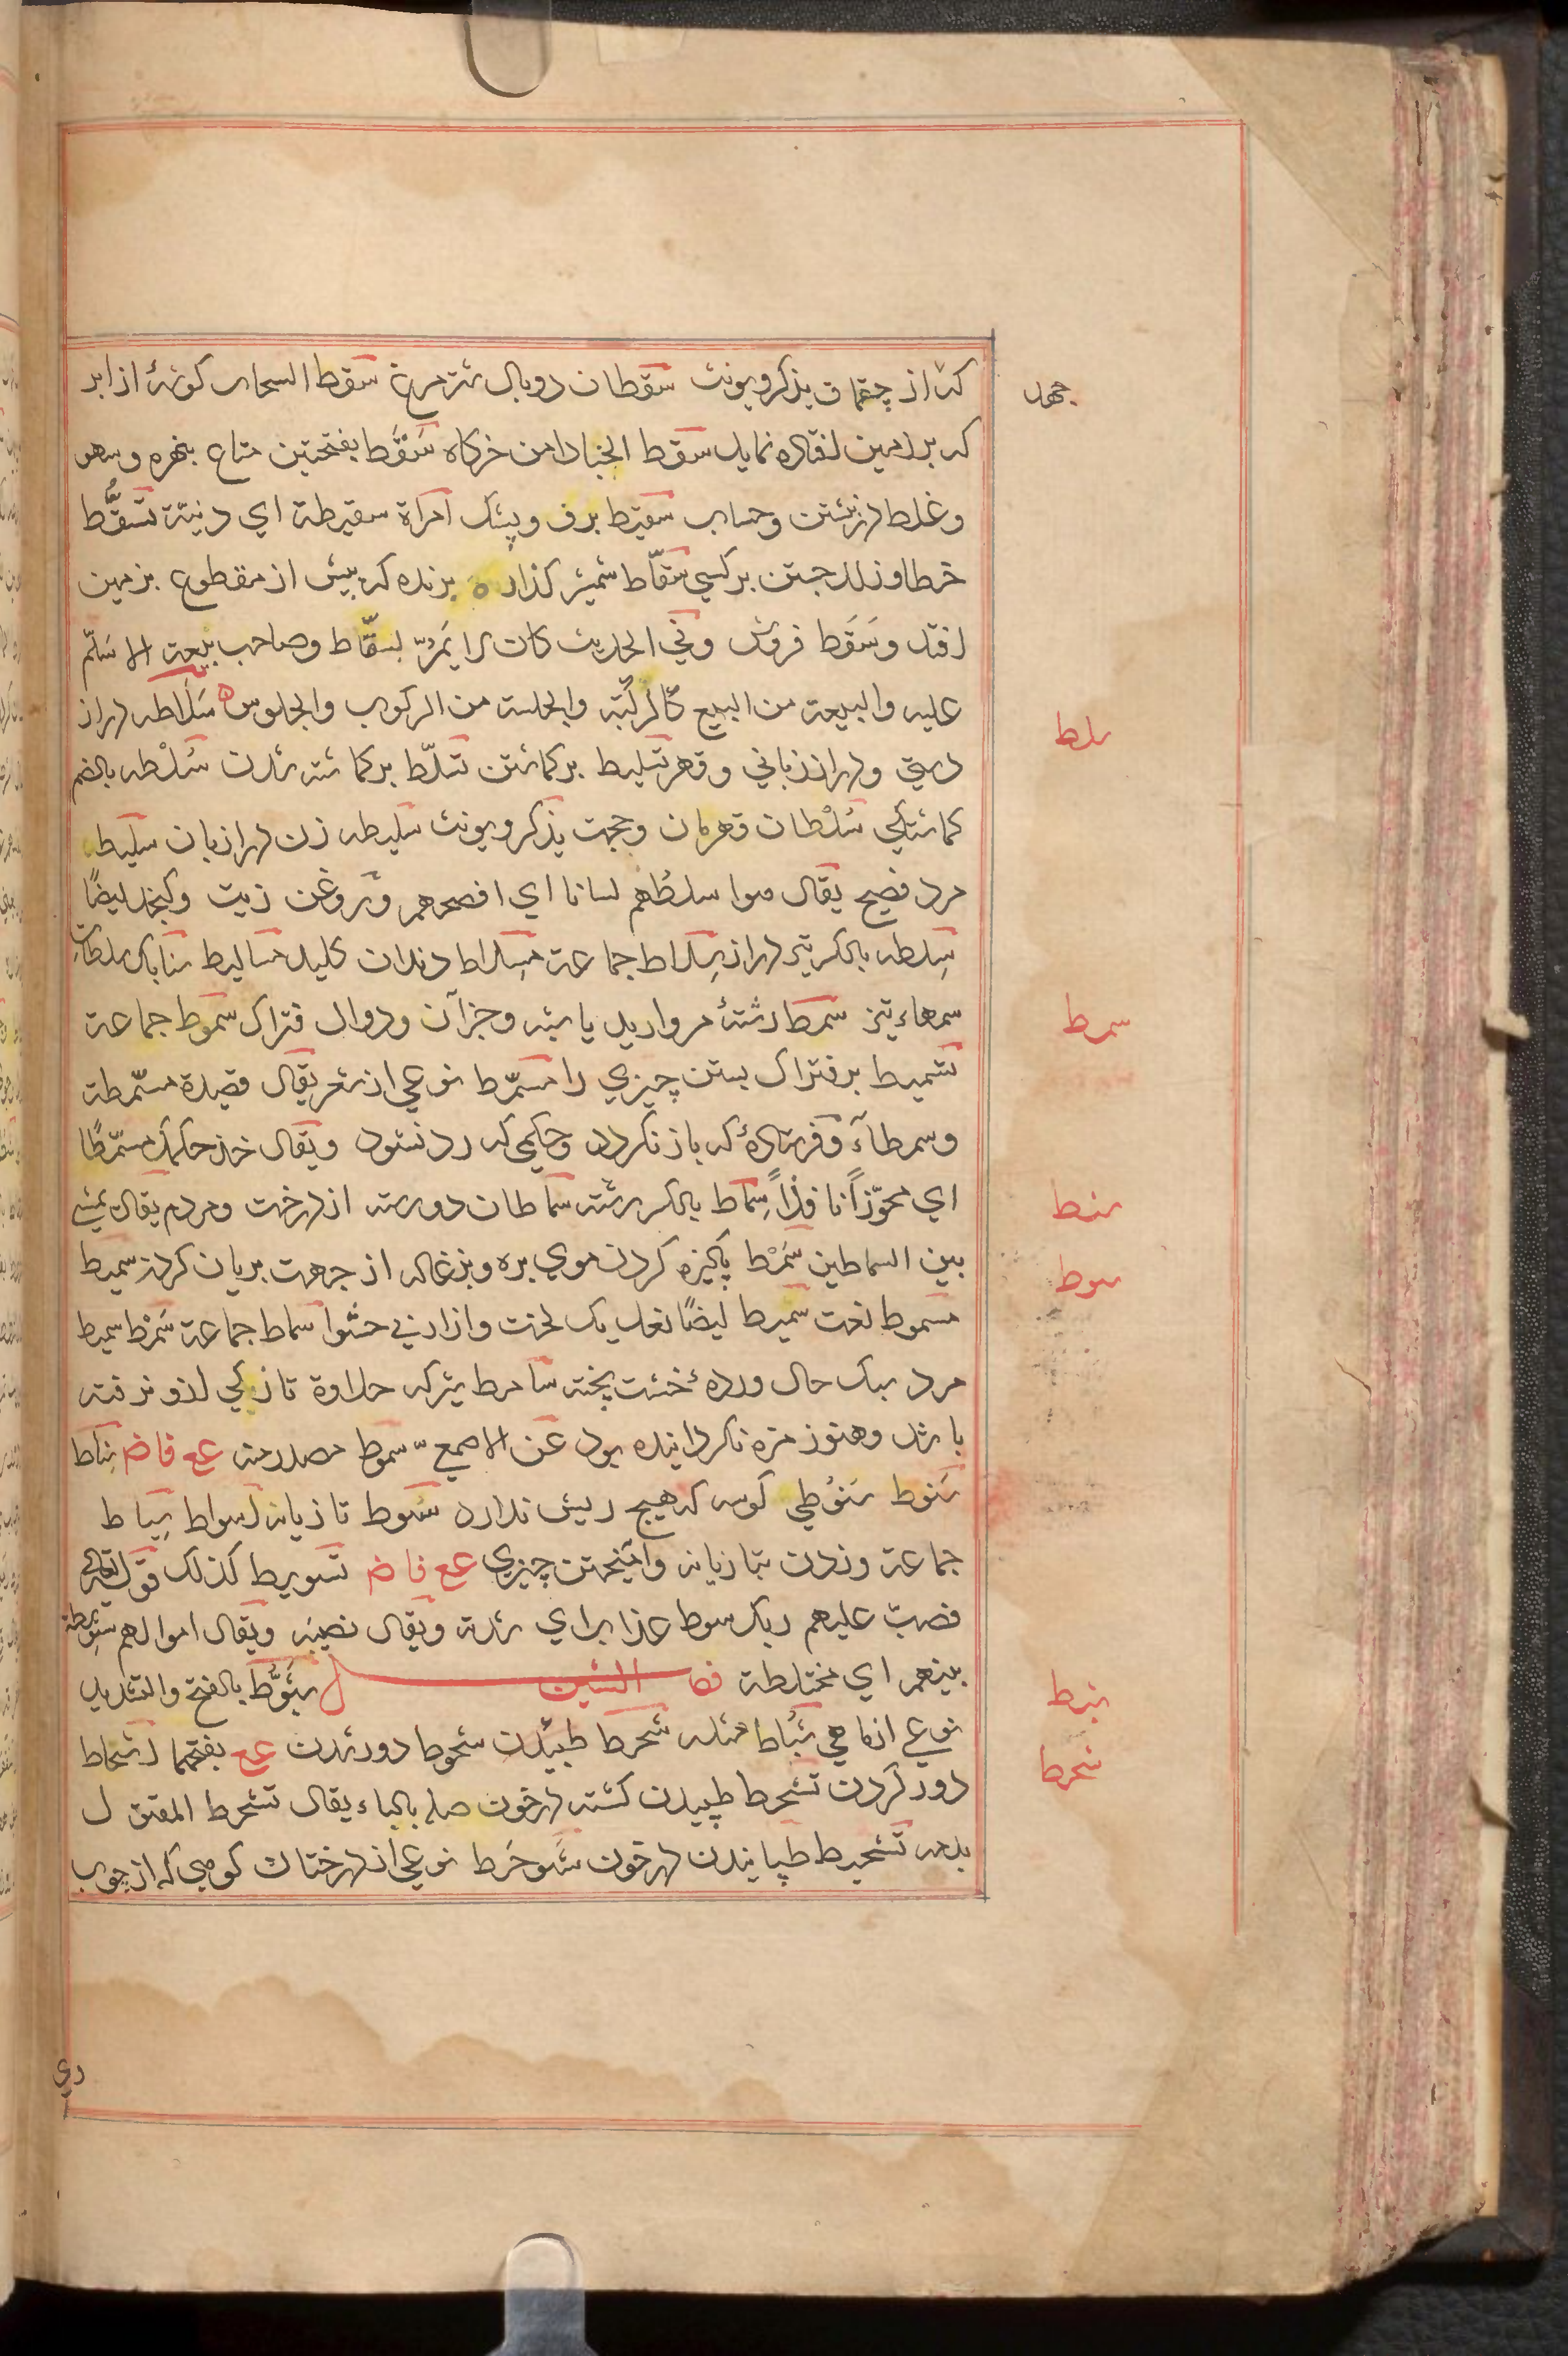 که از چقماق یذکر ویونث سقطان دو بال شترمرغ سقط السحاب گوشهٔ از ابر
جهد
که بر زمین افتاده نماید سقط الخبا دامن خرگاه سَقَط بفتحتین متاع بنهره وسهو
وغلط در نبشتن وحساب سقیط برف وپشک امراة سقیطة ای دنیئة تسقُّط
خطا وزلل جستن بر کسی سقّاط شمشیر گذاره برنده که پیش از مقطوع بزمین
افتد وسَقَط فروش وفی الحدیث کان لا یَمُرّ بسقّاط وصاحب بیعة الا سَلّم
علیه والبیعة من البیع کالرِکبة والجلسة من الرکوب والجلوس سَلاطه دراز
سلط
دستی ودراز زبانی وقهر تسلیط برگماشتن تسلّط برگماشته شدن سُلْطه بالضم
گماشتگی سُلْطان قهرمان وحجت یذکر ویونث سلیطه زن دراز زبان سلیط
مرد فصیح یقال هوا سلطُهم لسانا ای افصحهم و روغن زیت وکنجد ایضًا
سِلطه بالکسر تیر دراز سِلاط جماعة مِسلاط دندان کلید مسالیط سنابک سلطات
سمهاء تیز سمط رشتهٔ مروارید یا شبه وجز آن ودوال فتراک سموط جماعة
سمط
تسمیط بر فتراک بستن چیزی را مسمّط نوعی از شعر یقال قصیدة مسمّطة
وسمطآء وفرستادهٔ که باز نگردد وحکمی که رد نشود ویقال خذ حکمک مسمّطًا
ای مجوّزاً نافذاً سِماط بالکسر رشته سماطان دو رسته از درخت ومردم یقال یمشی
سنط
بین السماطین سَمْط پاکیزه کردن موی بره وبزغاله از جهت بریان کردن سمیط
سوط
مسموط نعت سمیط ایضًا نعل یک لخت وازار بی حشو اسماط جماعة سُمُط سمیط
مرد سبک حال وردهٔ خشت پخته سامط شیر که حلاوة تازگی ازو رفته
باشد وهنوز مزه نگردانیده بود عن الاصمعیّ سموط مصدر منه ع ع فا ض سِناط
سَنوط سَنوُطی کوسه که هیچ ریش ندارد سَوط تازیانه اسواط سِیاط
جماعة وزدن بتازیانه وآمیختن چیزی ع ع فا ض تسویط کذلک قوله تعالی
فصبّ علیهم ربک سوط عذاب ای شدة ویقال نصیبه ویقال اموالهم سَوِیطة
بینهم ای مختلطة فصل الشین شَبُّوط بالفتح والتشدید
شبط
نوعی از ماهی شُبّاط مثله شحط طپیدن شحوط دور شدن ع ع بفتحهما اشحاط
شحط
دور کردن تشحط طپیدن کشته در خون صله بالباء یقال تشحط المقتول
بدمه تشحیط طپانیدن در خون شَوحَط نوعی از درختان کوهی که از چوب
وی